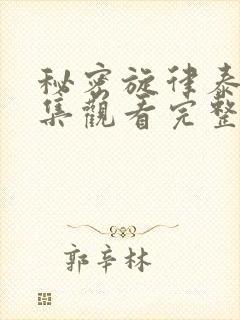 秘密旋律泰
集觀看完整
郭辛林